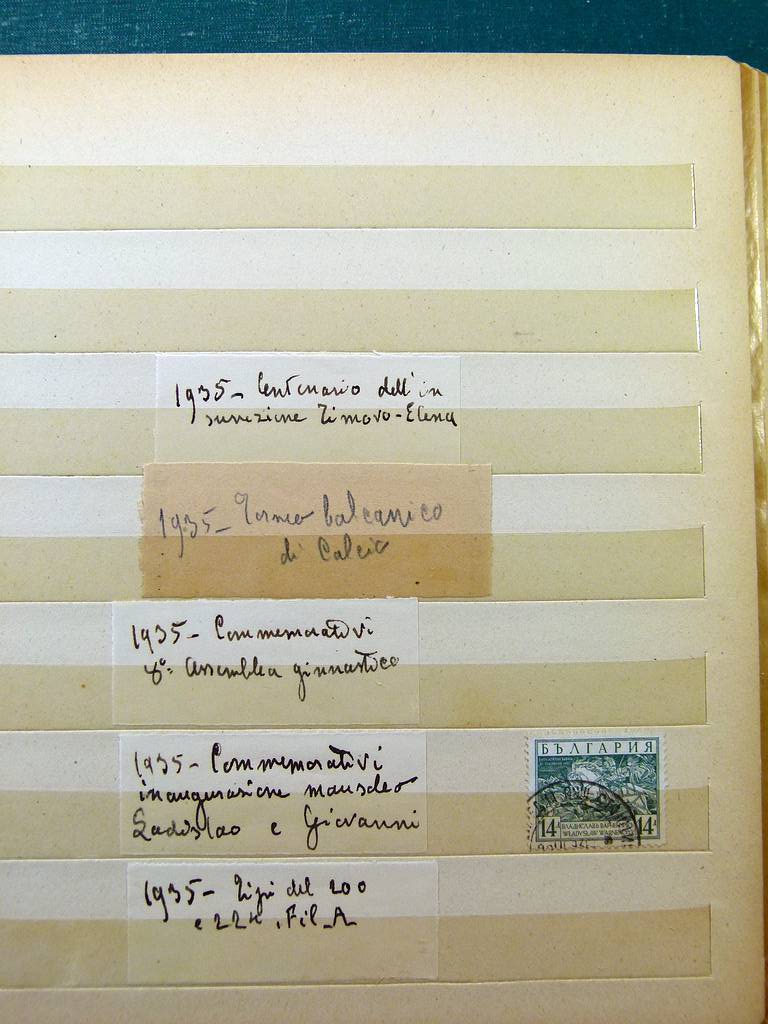 1935 - Centenario dell'in
surrezione Tirnovo-Elena
1935 - Torneo balcanico
di Calcio
1935 - Commemorativi
8ª Assemblea ginnastica
1935 - Commemorativi
inaugurazione mausoleo
Ladislao e Giovanni
БЪЛГАРИЯ
14 ВЛАДИСЛАВЪ ВАРНЕНЧИКЪ 14
WŁADYSŁAW WARNEŃCZYK
1935 - Tipi del 200
e 224 . Fil. A